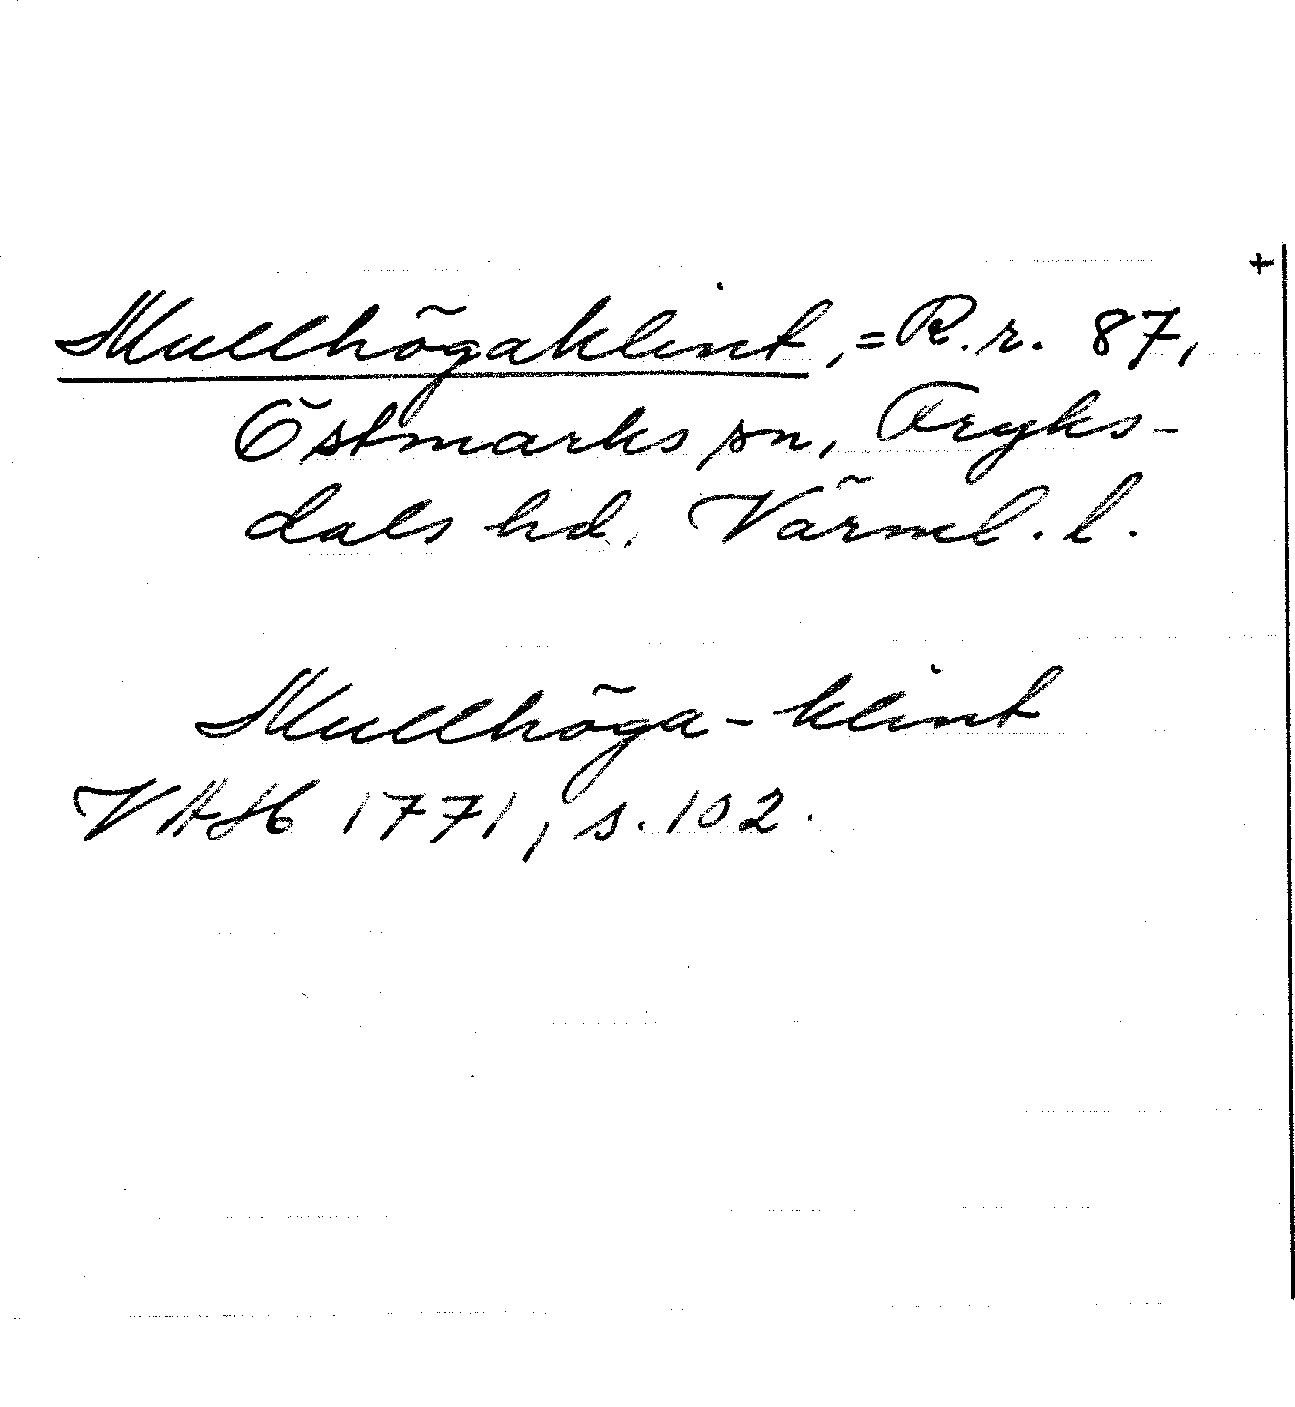 +
Mullhögaklint, = R.r. 87,
Östmarks sn, Fryks-
dals hd, Värml. l.
Mullhöga-klint
VAH 1771, s. 102.